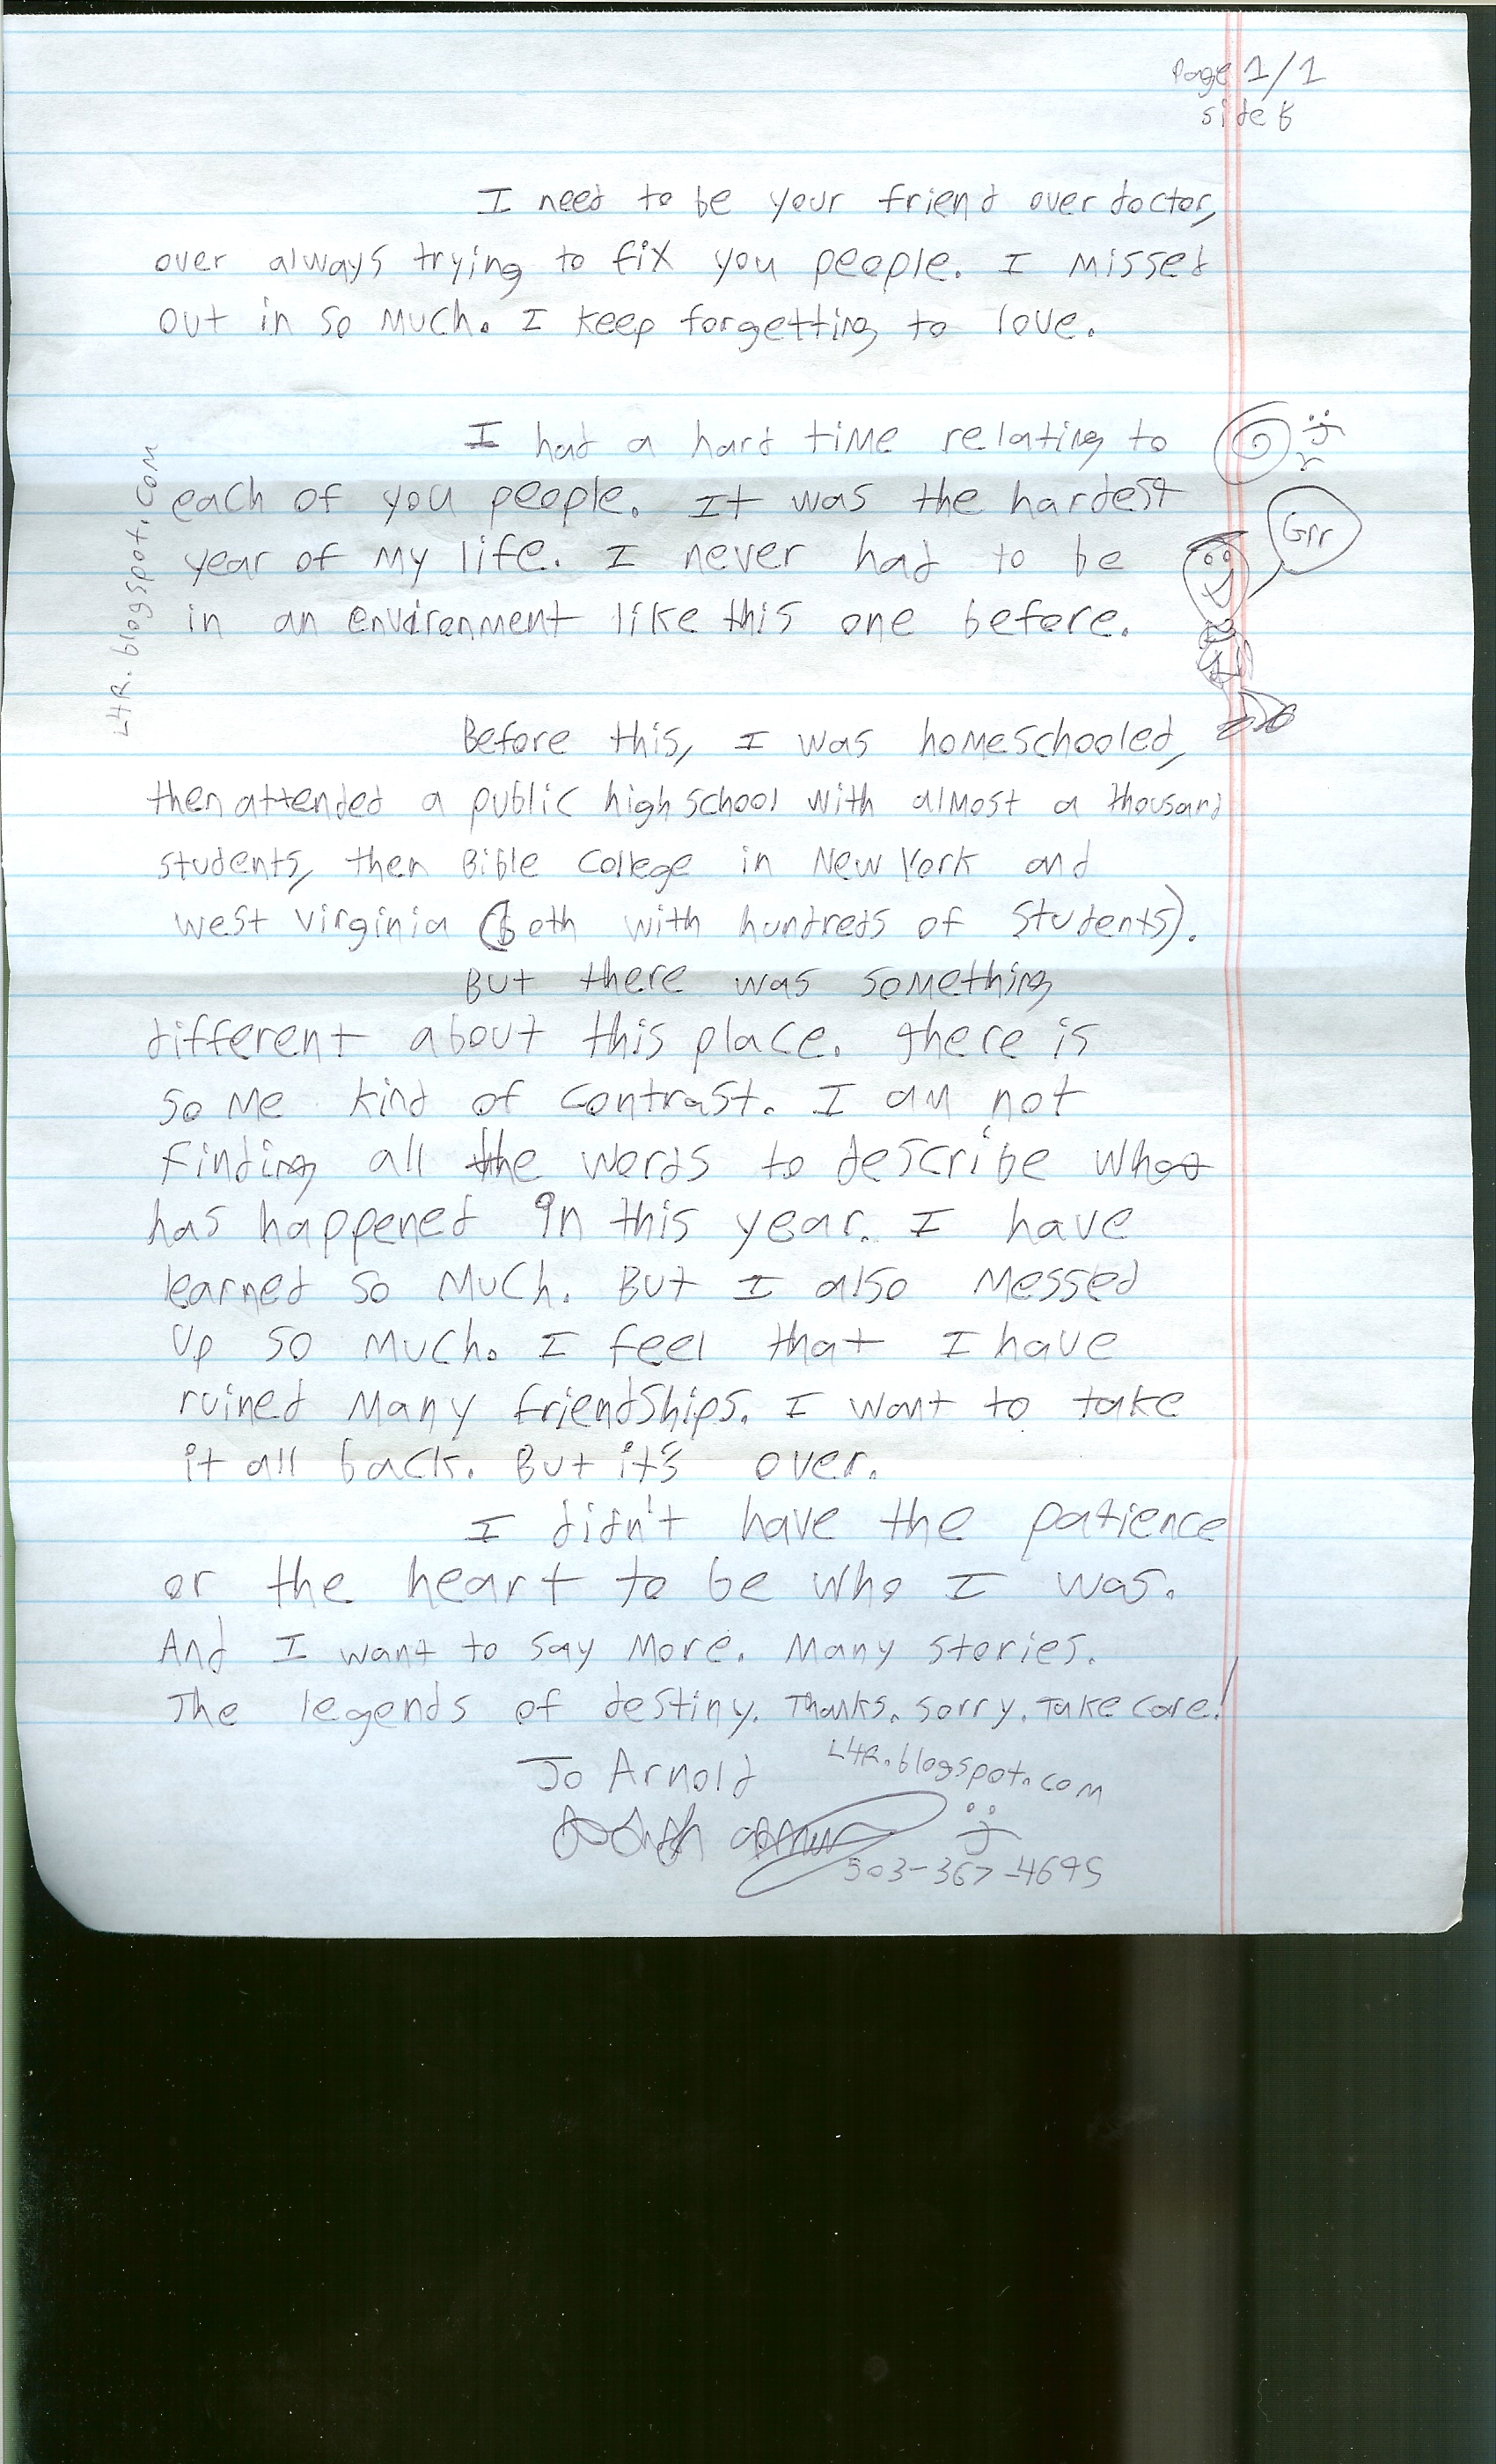 Page 1/1
side B
I need to be your friend over doctor,
over always trying to fix you people. I missed
out in so much. I keep forgetting to love.
I had a hard time relating to
each of you people. It was the hardest
year of my life. I never had to be
in an environment like this one before.
Grr
L4R.blogspot.com
Before this, I was homeschooled,
then attended a public high school with almost a thousand
students, then Bible College in New York and
West Virginia (both with hundreds of students).
But there was something
different about this place. There is
some kind of contrast. I am not
finding all the words to describe what
has happened in this year. I have
learned so much. But I also messed
up so much. I feel that I have
ruined many friendships. I want to take
it all back. But it's over.
I didn't have the patience
or the heart to be who I was.
And I want to say more. Many stories.
The legends of destiny. Thanks. Sorry. Take care!
Jo Arnold
L4R.blogspot.com
503-367-4695